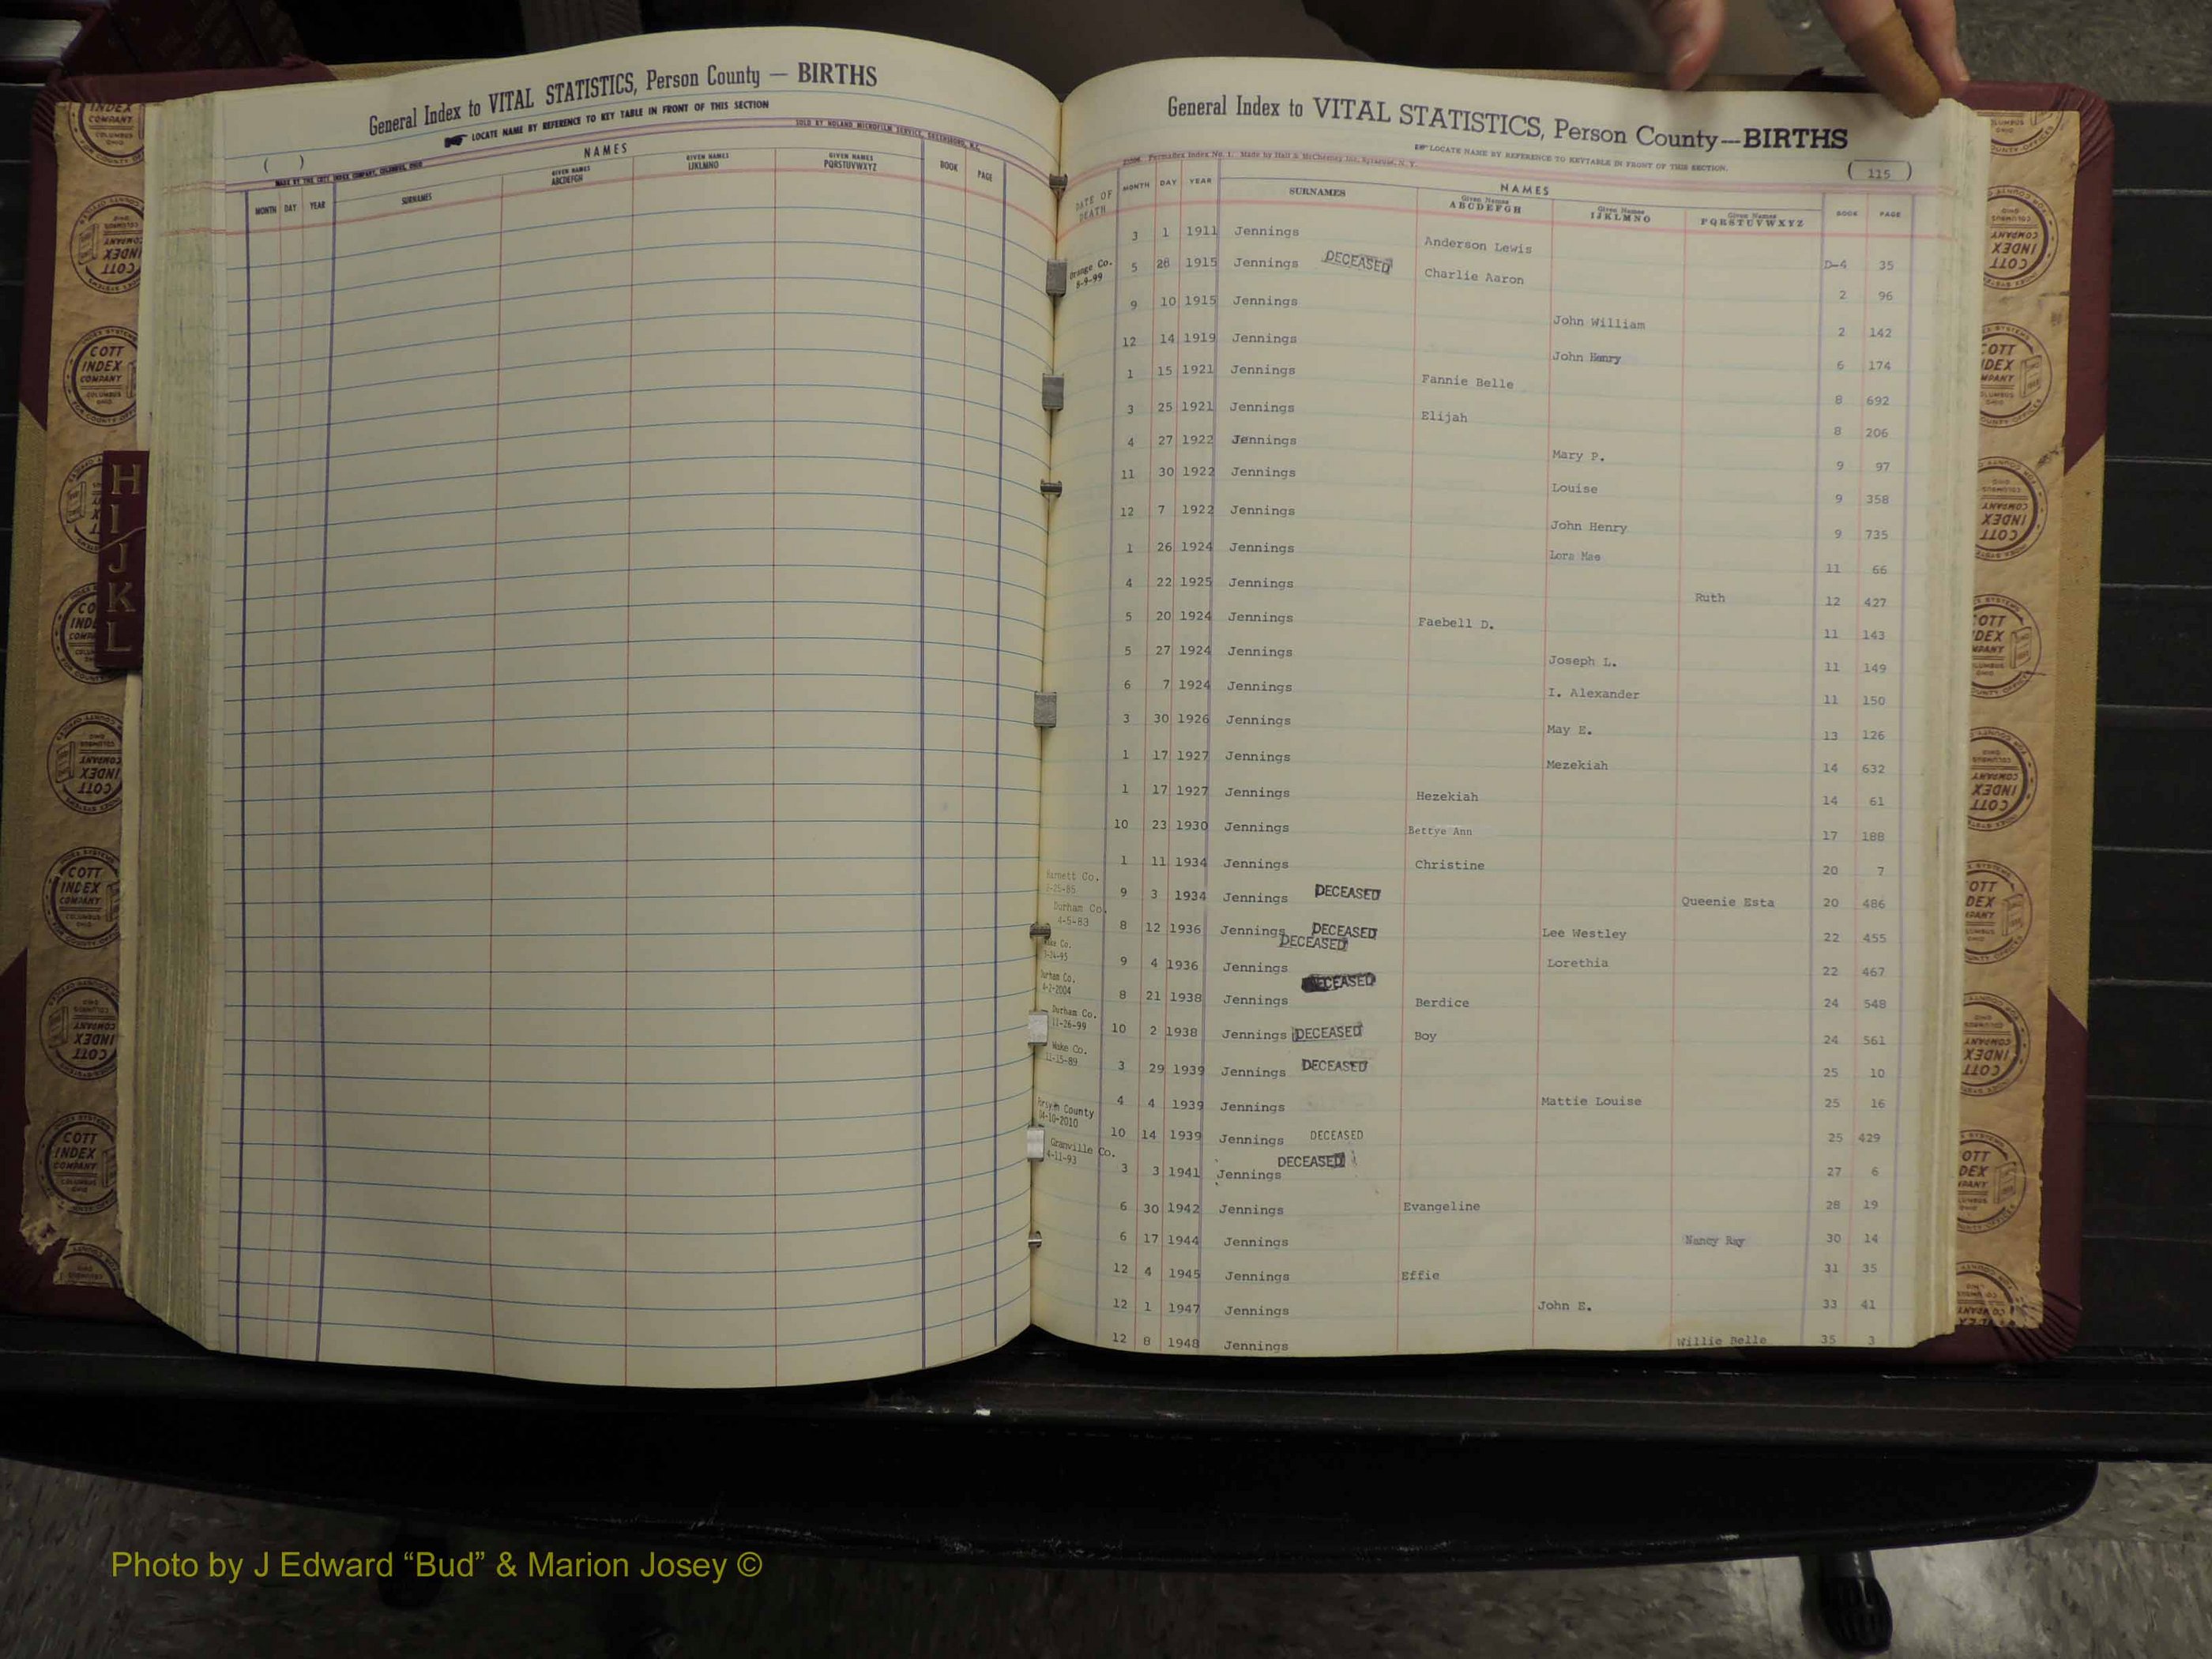 General Index to VITAL STATISTICS, Person County — BIRTHS
LOCATE NAME BY REFERENCE TO KEY TABLE IN FRONT OF THIS SECTION
SOLD BY NOLAND MICROFILM SERVICE, GREENSBORO, N.C.
( )
MADE BY THE COTT INDEX COMPANY, COLUMBUS, OHIO
NAMES
MONTH DAY YEAR SURNAMES GIVEN NAMES ABCDEFGH GIVEN NAMES IJKLMNO GIVEN NAMES PQRSTUVWXYZ BOOK PAGE
H
I
J
K
L
General Index to VITAL STATISTICS, Person County---BIRTHS
LOCATE NAME BY REFERENCE TO KEYTABLE IN FRONT OF THIS SECTION.
Permaflex Index No. 1. Made by Hall & McChesney Inc, Syracuse, N. Y.
( 115 )
NAMES
DATE OF DEATH MONTH DAY YEAR SURNAMES Given Names ABCDEFGH Given Names IJKLMNO Given Names PQRSTUVWXYZ BOOK PAGE
3 1 1911 Jennings Anderson Lewis D-4 35
Orange Co. 5-9-99 5 28 1915 Jennings DECEASED Charlie Aaron 2 96
9 10 1915 Jennings John William 2 142
12 14 1919 Jennings John Henry 6 174
1 15 1921 Jennings Fannie Belle 8 692
3 25 1921 Jennings Elijah 8 206
4 27 1922 Jennings Mary P. 9 97
11 30 1922 Jennings Louise 9 358
12 7 1922 Jennings John Henry 9 735
1 26 1924 Jennings Lora Mae 11 66
4 22 1925 Jennings Ruth 12 427
5 20 1924 Jennings Faebell D. 11 143
5 27 1924 Jennings Joseph L. 11 149
6 7 1924 Jennings I. Alexander 11 150
3 30 1926 Jennings May E. 13 126
1 17 1927 Jennings Mezekiah 14 632
1 17 1927 Jennings Hezekiah 14 61
10 23 1930 Jennings Bettye Ann 17 188
1 11 1934 Jennings Christine 20 7
9 3 1934 Jennings DECEASED Queenie Esta 20 486
Durham Co. 4-5-83 8 12 1936 Jennings DECEASED Lee Westley 22 455
DECEASED
9 4 1936 Jennings Lorethia 22 467
Durham Co. 8 21 1938 Jennings DECEASED Berdice 24 548
Durham Co. 11-26-99 10 2 1938 Jennings DECEASED Boy 24 561
Wake Co. 11-15-89 3 29 1939 Jennings DECEASED 25 10
4 4 1939 Jennings Mattie Louise 25 16
County 04-10-2010 10 14 1939 Jennings DECEASED 25 429
Granville Co. 4-11-93 3 3 1941 Jennings DECEASED 27 6
6 30 1942 Jennings Evangeline 28 19
6 17 1944 Jennings Nancy Ray 30 14
12 4 1945 Jennings Effie 31 35
12 1 1947 Jennings John E. 33 41
12 8 1948 Jennings Willie Belle 35 3
COTT INDEX COMPANY COLUMBUS OHIO
Photo by J Edward “Bud” & Marion Josey ©